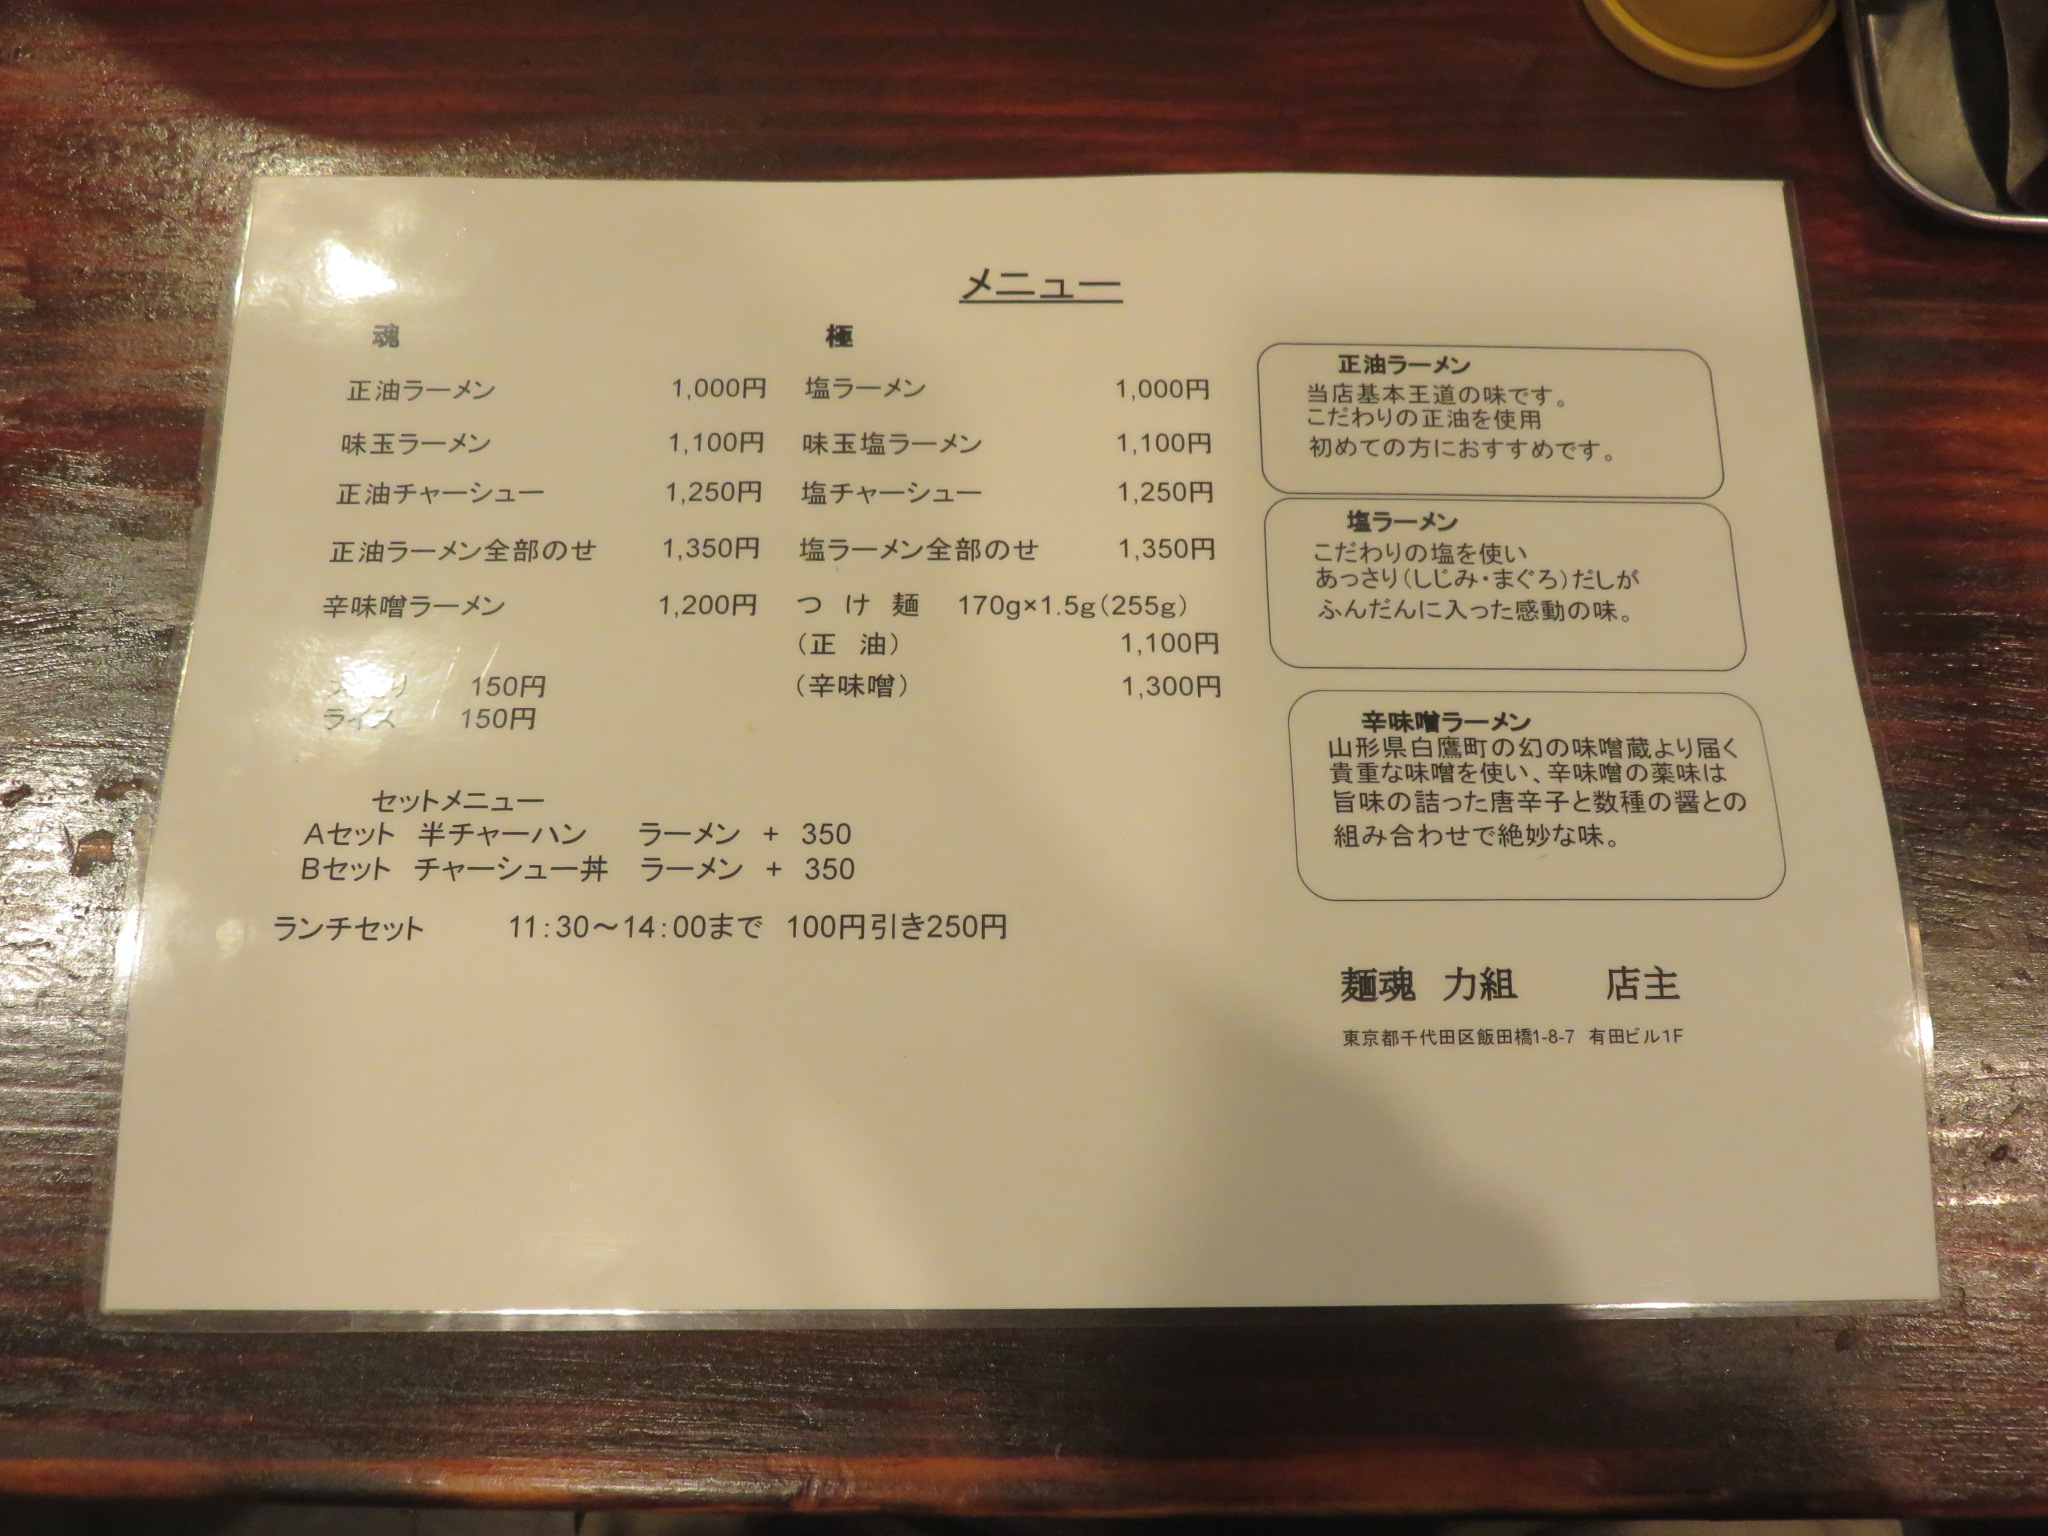 メニュー
魂
正油ラーメン 1,000円
味玉ラーメン 1,100円
正油チャーシュー 1,250円
正油ラーメン全部のせ 1,350円
辛味噌ラーメン 1,200円
150円
ライス 150円
極
塩ラーメン 1,000円
味玉塩ラーメン 1,100円
塩チャーシュー 1,250円
塩ラーメン全部のせ 1,350円
つ け 麺 170g×1.5g(255g)
(正 油) 1,100円
(辛味噌) 1,300円
セットメニュー
Aセット 半チャーハン ラーメン + 350
Bセット チャーシュー丼 ラーメン + 350
ランチセット 11:30～14:00まで 100円引き250円
正油ラーメン
当店基本王道の味です。
こだわりの正油を使用
初めての方におすすめです。
塩ラーメン
こだわりの塩を使い
あっさり(しじみ・まぐろ)だしが
ふんだんに入った感動の味。
辛味噌ラーメン
山形県白鷹町の幻の味噌蔵より届く
貴重な味噌を使い、辛味噌の薬味は
旨味の詰った唐辛子と数種の醤との
組み合わせで絶妙な味。
麺魂 力組 店主
東京都千代田区飯田橋1-8-7 有田ビル1F